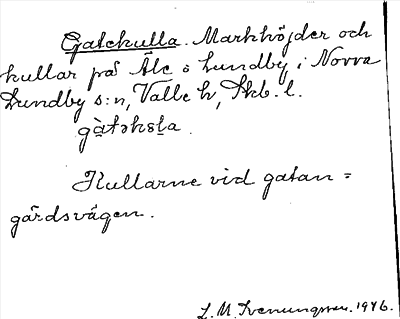 Gatekulla. Markhöjder och
kullar på Åle s Lundby i Norra
Lundby s:n, Valle h, Skb. l.
gàtəkɷla.
Kullarne vid gatan =
gårdsvägen.
L. M. Svenungsson. 1946.